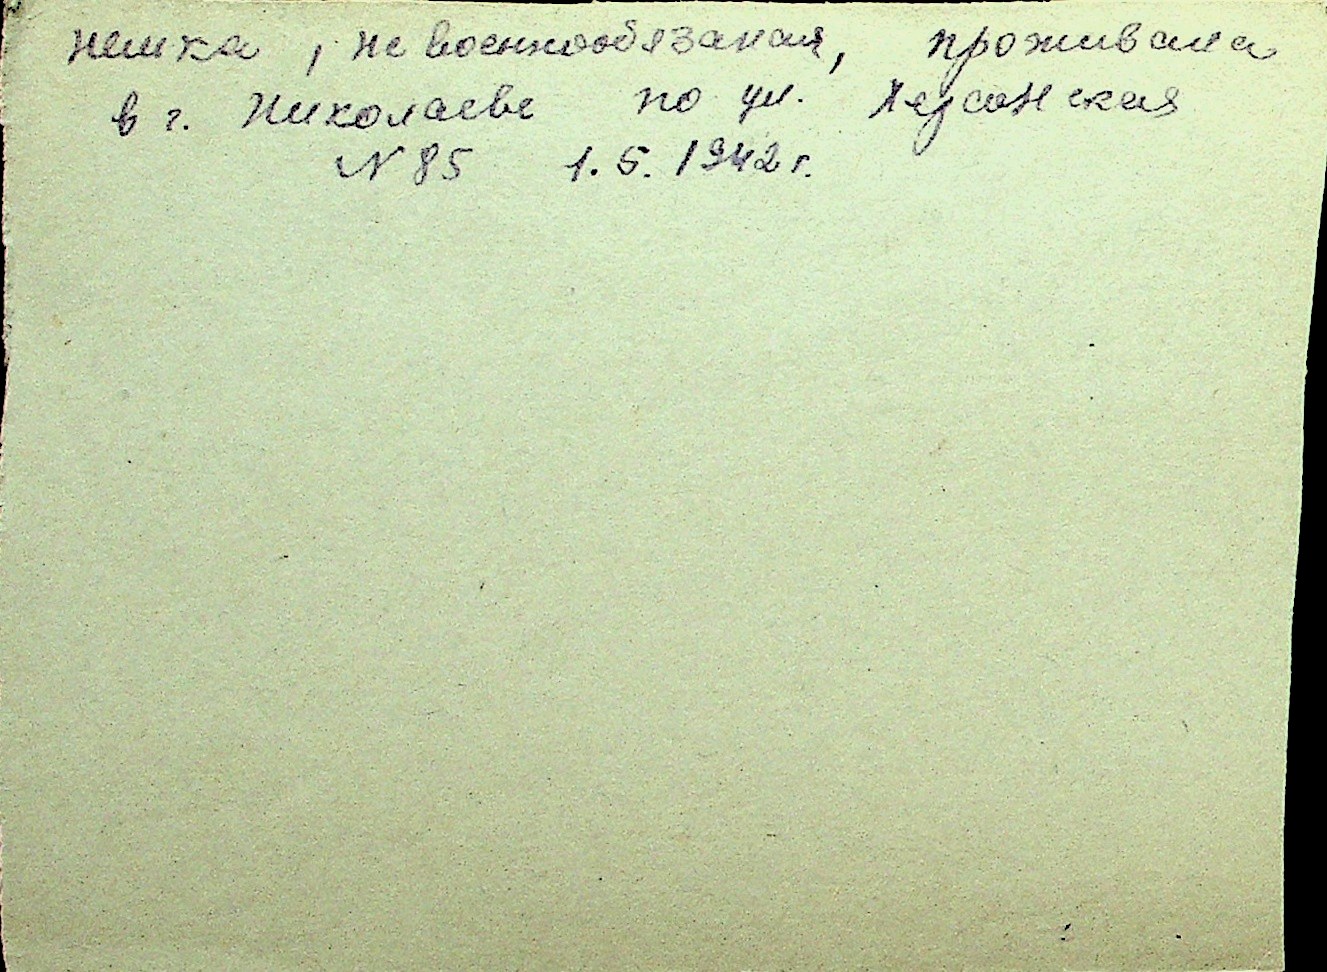 немка, не военнообязаная, проживала
в г. Николаеве по ул. Херсонская
N 85 1.5.1942 г.